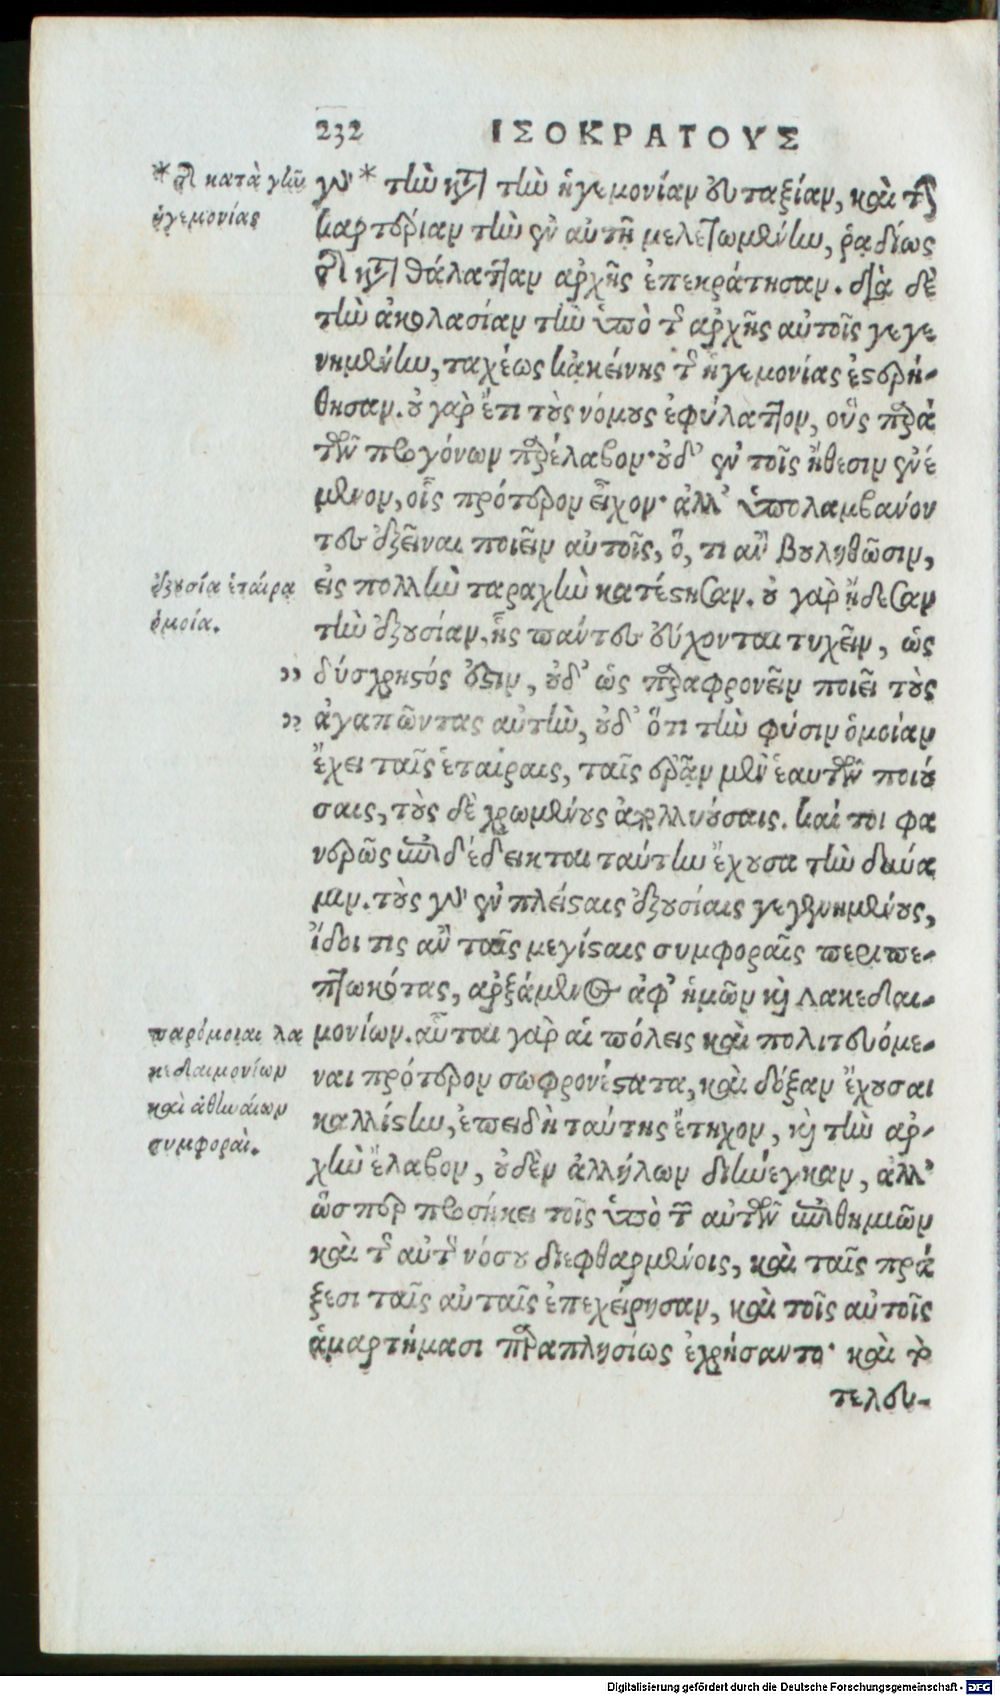 232 ΙΣΟΚΡΑΤΟΥΣ
* τῆς κατὰ γῆν
ἡγεμονίας
γοῦν * τὴν κατὰ τὴν ἡγεμονίαν εὐταξίαν, καὶ τὴν
καρτερίαν τὴν ἐν αὐτῇ μελετωμένην, ῥᾳδίως
τῆς κατὰ θάλατταν ἀρχῆς ἐπεκράτησαν. διὰ δὲ
τὴν ἀκολασίαν τὴν ὑπὸ τῆς ἀρχῆς αὐτοῖς γεγε
νημένην, ταχέως κἀκείνης τῆς ἡγεμονίας ἐστερή-
θησαν. οὐ γὰρ ἔτι τοὺς νόμους ἐφύλαττον, οὓς παρὰ
τῶν προγόνων παρέλαβον· οὐδ' ἐν τοῖς ἤθεσιν ἐνέ
μενον, οἷς πρότερον εἶχον· ἀλλ' ὑπολαμβάνον
τες ἐξεῖναι ποιεῖν αὐτοῖς, ὅ, τι ἂν βουληθῶσιν,
ἐξουσία ἑταίρᾳ
ὁμοία.
εἰς πολλὴν ταραχὴν κατέστησαν. οὐ γὰρ ᾔδεσαν
τὴν ἐξουσίαν, ἧς πάντες εὔχονται τυχεῖν, ὡς
,, δύσχρηστός ἐστιν, οὐδ' ὡς παραφρονεῖν ποιεῖ τοὺς
,, ἀγαπῶντας αὐτὴν, οὐδ' ὅτι τὴν φύσιν ὁμοίαν
ἔχει ταῖς ἑταίραις, ταῖς ἐρᾷν μὲν ἑαυτῶν ποιού
σαις, τοὺς δὲ χρωμένους ἀπολλυούσαις. καί τοι φα
νερῶς ἐπιδέδεικται ταύτην ἔχουσα τὴν δύνα
μιν. τοὺς γοῦν ἐν πλείσταις ἐξουσίαις γεγενημένους,
ἴδοι τις ἂν ταῖς μεγίσταις συμφοραῖς περιπε-
πτωκότας, ἀρξάμενος ἀφ' ἡμῶν καὶ Λακεδαι-
παρόμοιαι λα
κεδαιμονίων
καὶ ἀθηναίων
συμφοραὶ.
μονίων. αὗται γὰρ αἱ πόλεις καὶ πολιτευόμε-
ναι πρότερον σωφρονέστατα, καὶ δόξαν ἔχουσαι
καλλίστην, ἐπειδὴ ταύτης ἔτηχον, καὶ τὴν ἀρ-
χὴν ἔλαβον, οὐδὲν ἀλλήλων διήνεγκαν, ἀλλ'
ὥσπερ προσήκει τοῖς ὑπὸ τῶν αὐτῶν ἐπιθημιῶν
καὶ τῆς αὐτῆς νόσου διεφθαρμένοις, καὶ ταῖς πρά
ξεσι ταῖς αὐταῖς ἐπεχείρησαν, καὶ τοῖς αὐτοῖς
ἁμαρτήμασι παραπλησίως ἐχρήσαντο· καὶ τὸ
τελευ-
Digitalisierung gefördert durch die Deutsche Forschungsgemeinschaft - DFG